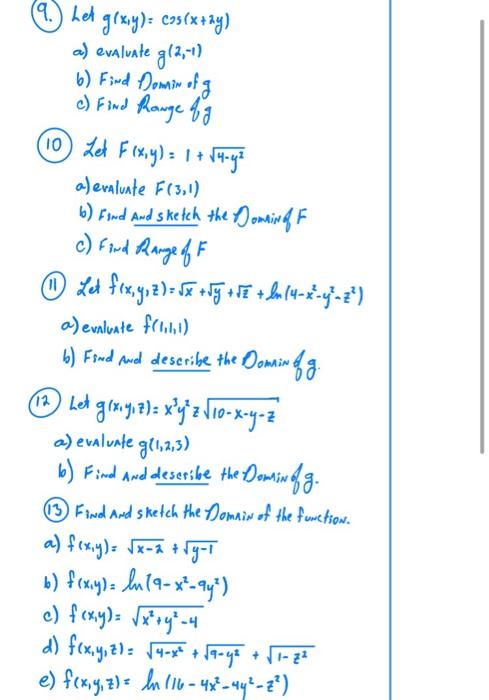 9. Let g(x,y) = cos(x+2y)
a) evaluate g(2,-1)
b) Find Domain of g
c) Find Range of g
10 Let F(x,y) = 1 + √4-y²
a) evaluate F(3,1)
b) Find and sketch the Domain of F
c) Find Range of F
11 Let f(x,y,z) = √x + √y + √z + ln(4-x²-y²-z²)
a) evaluate f(1,1,1)
b) Find and describe the Domain of g.
12 Let g(x,y,z) = x³y²z√10-x-y-z
a) evaluate g(1,2,3)
b) Find and describe the Domain of g.
13 Find and sketch the Domain of the function.
a) f(x,y) = √x-2 + √y-1
b) f(x,y) = ln(9-x²-9y²)
c) f(x,y) = √x²+y²-4
d) f(x,y,z) = √4-x² + √9-y² + √1-z²
e) f(x,y,z) = ln(16-4x²-4y²-z²)